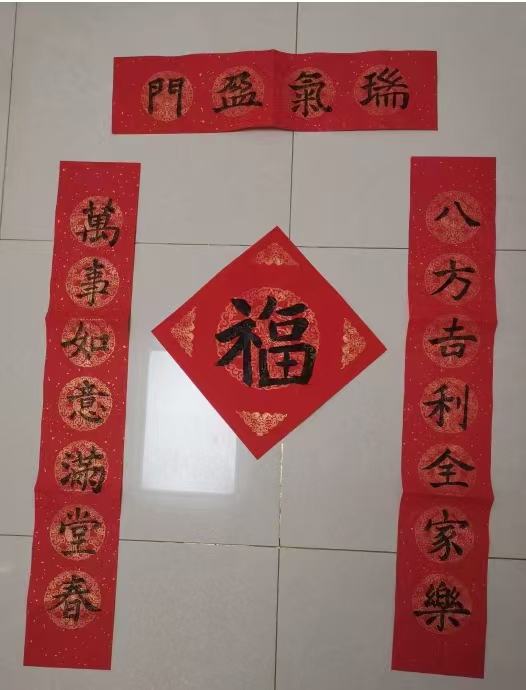 瑞氣盈門
八方吉利全家樂
萬事如意滿堂春
福